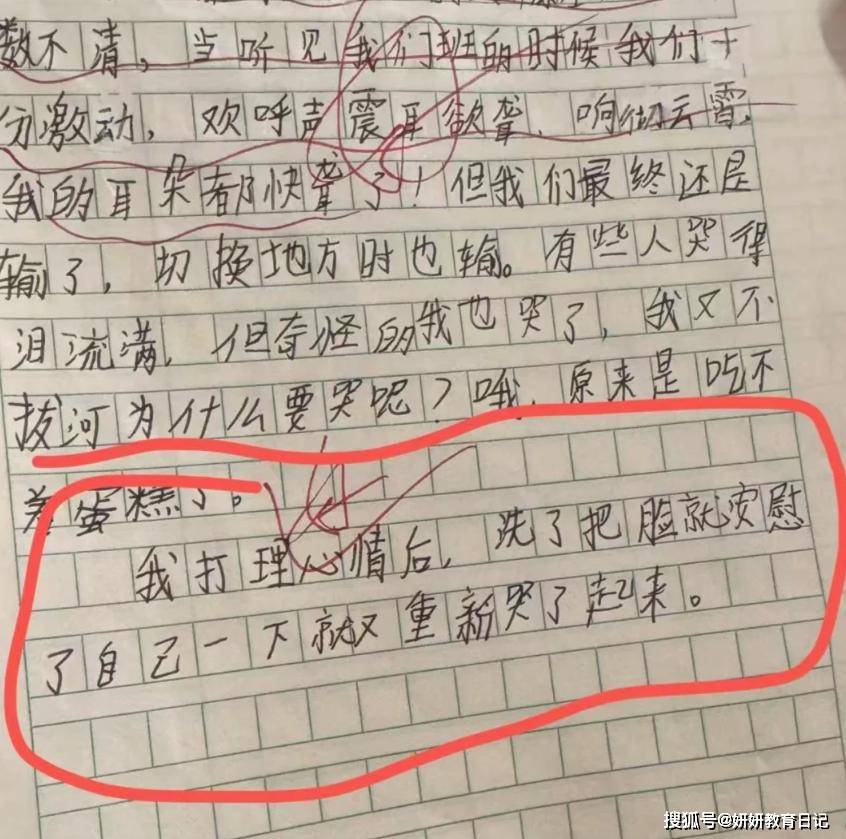 数不清，当听见我们班的时候我们十
分激动，欢呼声震耳欲聋，响彻云霄，
我的耳朵都快聋了！但我们最终还是
输了，切换地方时也输。有些人哭得
泪流满，但奇怪的我也哭了，我又不
拔河为什么要哭呢？哦，原来是吃不
着蛋糕了。
我打理心情后，洗了把脸就安慰
了自己一下就又重新哭了起来。
搜狐号@妍妍教育日记